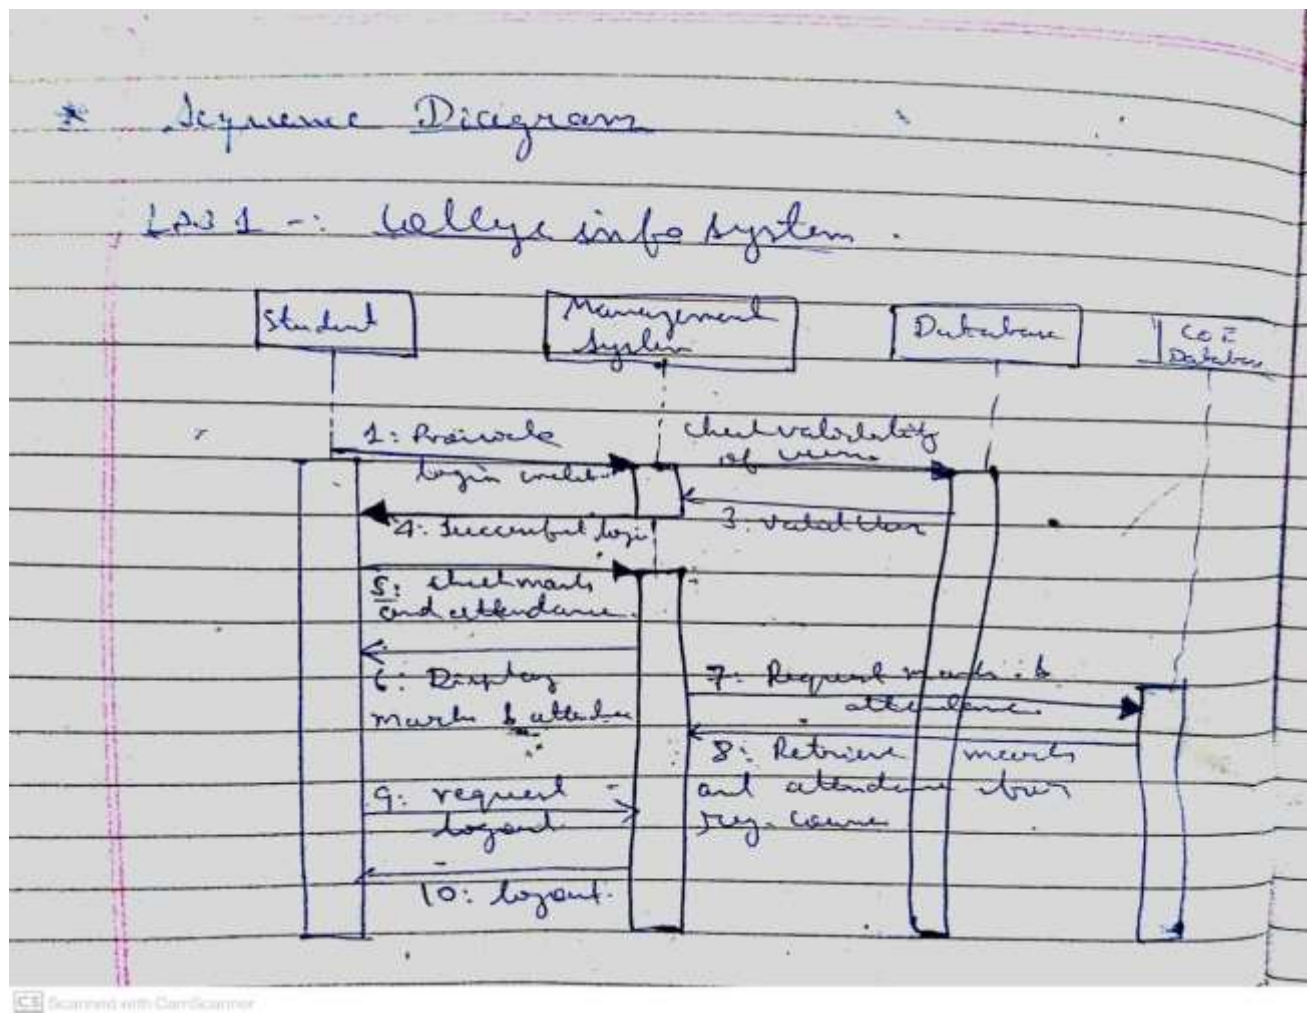 * Sequence Diagram
LAB 1 -: College info system.
Student
Management
System
Database
COE
Database
1: Provide
login
check validity
of user
3: validation
4: Successful login
5: check marks
and attendance
6: Display
marks & attendance
7: Request marks &
attendance
8: Retrieve marks
and attendance
reg. course
9: request
logout
10: logout.
CS Scanned with CamScanner